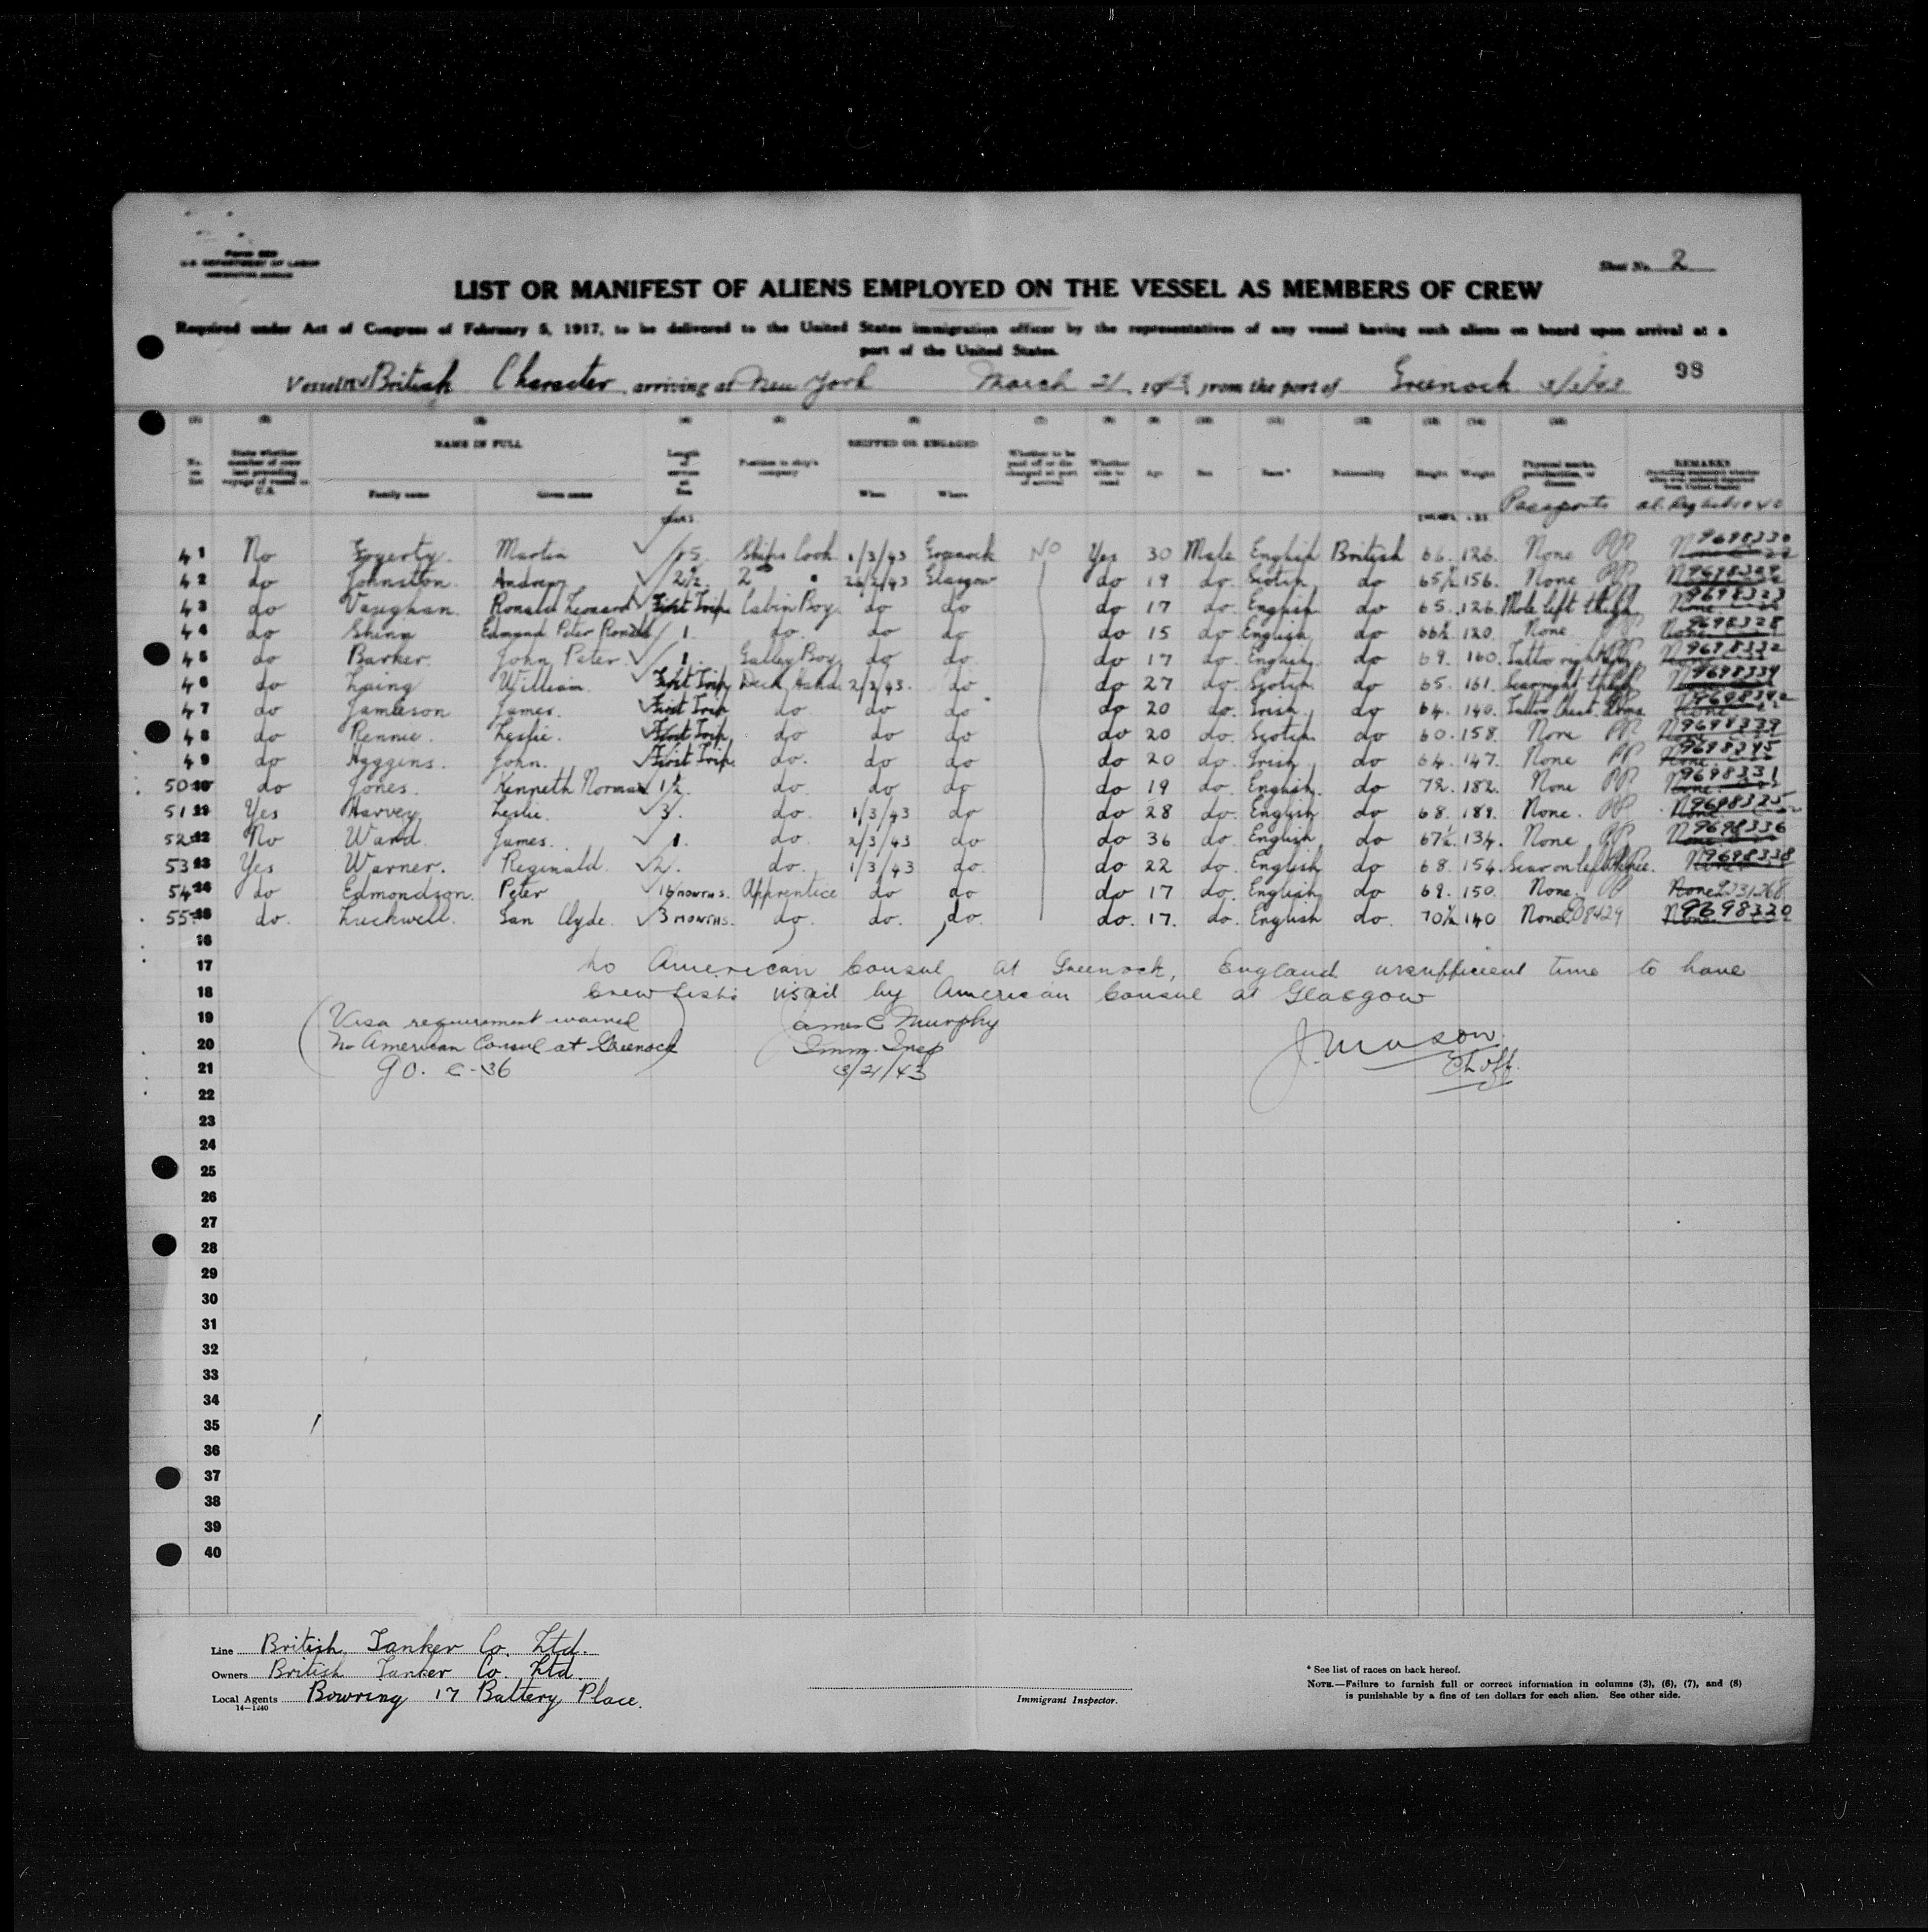 U.S. DEPARTMENT OF LABOR
Sheet No. 2
LIST OR MANIFEST OF ALIENS EMPLOYED ON THE VESSEL AS MEMBERS OF CREW
Required under Act of Congress of February 5, 1917, to be delivered to the United States immigration officer by the representatives of any vessel having such aliens on board upon arrival at a
part of the United States.
Vessel British Character, arriving at New York March 21, 1943, from the port of Greenock
98
NAME IN FULL SHIPPED OR ENGAGED
No. on list State whether member of crew last preceding voyage of vessel to U.S. Family name Given name Length of service at Sea Position in ship's company When Where Whether to be paid off or discharged at port of arrival Whether able to read Age Sex Race* Nationality Height Weight Physical marks, peculiarities, or disease REMARKS
YEARS Passports
41 No Fogerty. Martin 15 Ships Cook 1/3/43 Greenock NO Yes 30 Male English British 66. 126. None PP 9698330
42 do Johnston Andrew 2½ 2nd " 26/2/43 Glasgow do 19 do. Scotch do 65½ 156. None PP 9698329
43 do Vaughan. Ronald Leonard First Trip. Cabin Boy. do do do 17 do. English do 65. 126. Mole left thigh 9698323
44 do Shinn Edmund Peter Ronald 1. do. do do do 15 do English do 66½ 120. None PP 9698328
45 do Barker. John Peter. 1. Galley Boy do do do 17 do. English. do 69. 160. Tattoo right 9698332
46 do Laing William. First Trip Deck Hand 2/3/43. do do 27 do. Scotch. do 65. 161. Scar right 9698334
47 do Jamieson James. First Trip do. do do do 20 do. Irish. do 64. 140. Tattoo Chest. Arms.
48 do Rennie. Leslie. First Trip. do do do do 20 do. Scotch. do 60. 158. None PP 9698339
49 do Higgins. John. First Trip. do. do do do 20 do. Irish. do 64. 147. None PP 9698345
50 do Jones. Kenneth Norman 1½. do. do do do 19 do. English. do 72. 182. None PP 9698331
51 Yes Harvey Leslie. 3. do. 1/3/43 do do 28 do. English do 68. 189. None. PP 9698325
52 No Ward. James. 1. do. 2/3/43 do do 36 do. English do 67½. 134. None PP 9698336
53 Yes Warner. Reginald. 2. do. 1/3/43 do. do 22 do. English do 68. 154. Scar on left knee. 9698338
54 do Edmondson. Peter 16 MONTHS. Apprentice do do do 17 do. English do 69. 150. None. PP None
55 do. Luckwell. Ian Clyde. 3 MONTHS. do. do. do. do. 17. do. English do. 70½ 140 None 9698320
16
17 No American Consul at Greenock, England unsufficient time to have
18 Crew Lists visaed by American Consul at Glasgow
19 (Visa requirement waived James C Murphy
20 No American Consul at Greenock) Imm. Insp
21 GO. C-36 3/21/43
22
23
24
25
26
27
28
29
30
31
32
33
34
35
36
37
38
39
40
Line British Tanker Co. Ltd.
Owners British Tanker Co. Ltd.
Local Agents Bowring 17 Battery Place.
14—1240
Immigrant Inspector.
* See list of races on back hereof.
NOTE.—Failure to furnish full or correct information in columns (3), (6), (7), and (8)
is punishable by a fine of ten dollars for each alien. See other side.